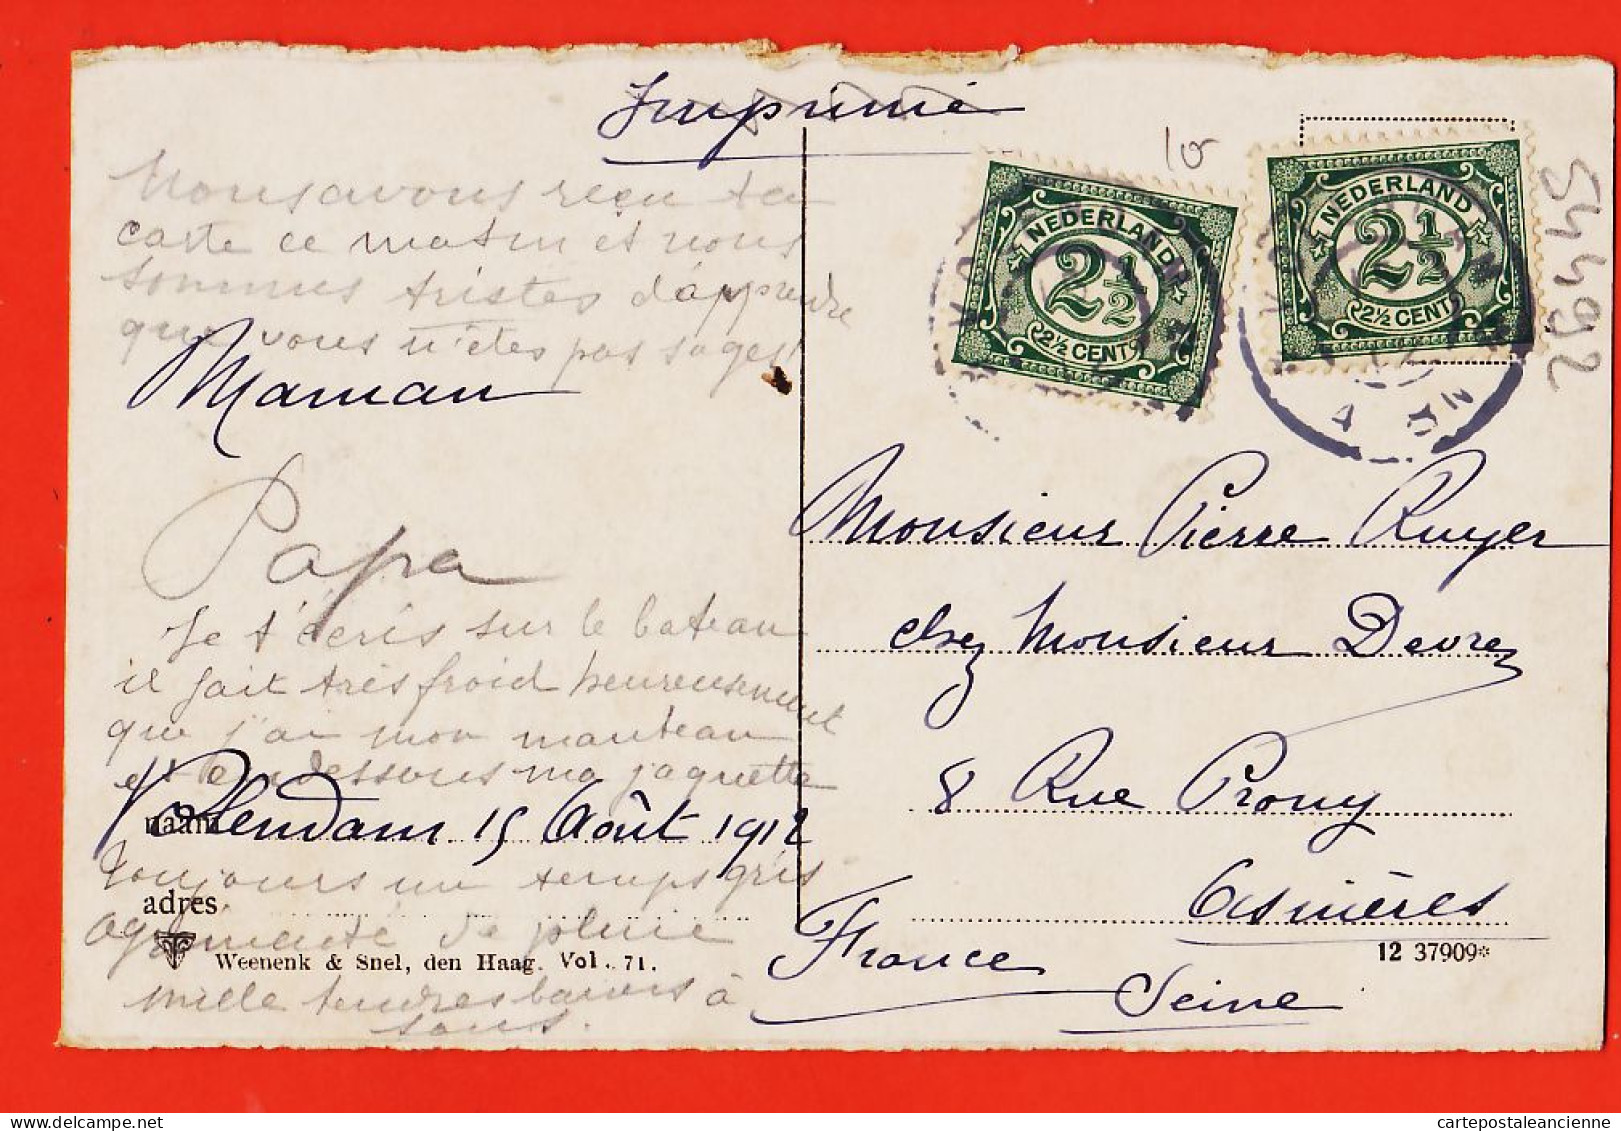 Imprimé
10
54492
Nous avons reçu ta
carte ce matin et nous
sommes tristes d'apprendre
que vous n'êtes pas sages!
Maman
Papa
Je t'écris sur le bateau
il fait très froid heureusement
que j'ai mon manteau
et en dessous ma jaquette
Volendam 15 Août 1912
naam
toujours un temps gris
adres
agrémenté de pluie
Weenenk & Snel, den Haag. Vol. 71.
mille tendres baisers à
tous.
NEDERLAND
2½
2½ CENT
NEDERLAND
2½
2½ CENT
Monsieur Pierre Ruyer
chez Monsieur Devrez
8 Rue Prony
Asnières
France
Seine
12 37909*
cartepostaleancienne
www.delcampe.net